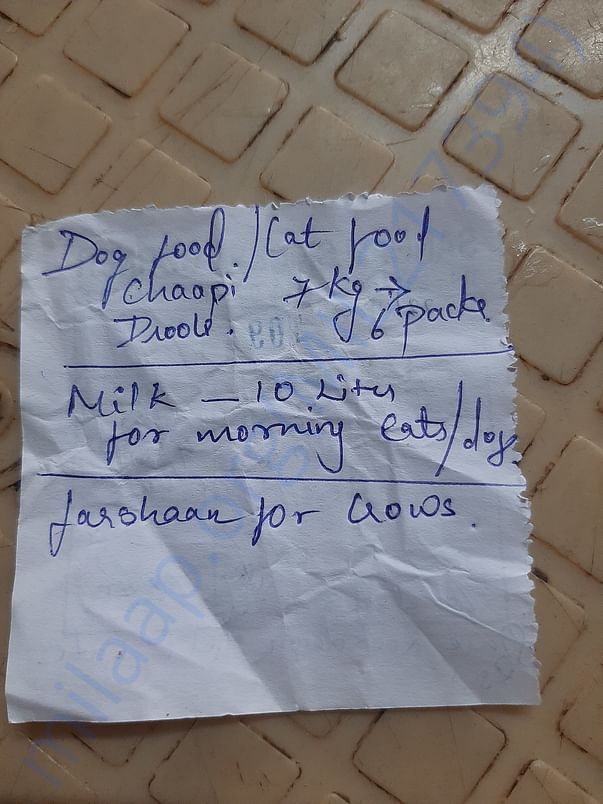 Dog food./Cat food
Chaapi 7 kg →
Droole. 6 packe
Milk — 10 Liters
for morning Cats/dog
farshaan for Crows.
milaap.org